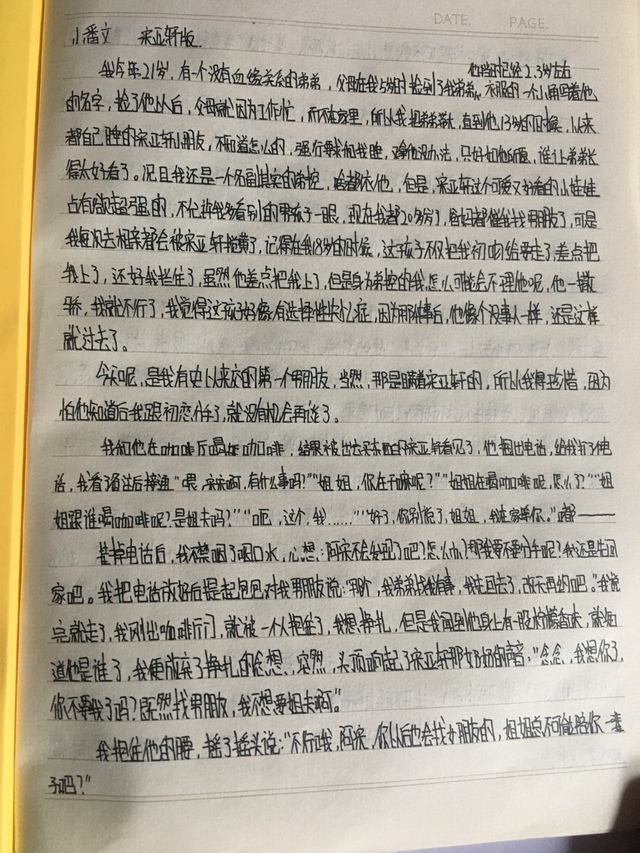 DATE. PAGE.
小番文 宋亚轩版.
他当时已经2.3岁左右
我今年21岁，有一个没有血缘关系的弟弟，父母在我5岁时捡到了我弟弟，衣服的一个小角写着他
的名字，捡了他以后，父母就因为工作忙，而不在家里，所以我把弟弟带大，直到他13岁的时候，从来
都自己睡的宋亚轩小朋友，不知道怎么的，强行要求和我睡，
得太好看了。况且我还是一个名副其实的弟控，啥都依他，但是，宋亚轩这个可爱又好看的小娃娃
占有欲超强的，不允许我多看别的男孩子一眼，现在我都20多岁了，爸妈都催我找男朋友了，可是
我每次去相亲都会被宋亚轩搅黄了，
娇，我就不行了，我觉得这孩子好像有选择性失忆症，因为那件事后，他像个没事人一样，还是这样
就过去了。
今天呢，是我有史以来交的第一个男朋友，当然，那是瞒着宋亚轩的，所以我得珍惜，因为
怕他知道后我跟初恋分手了，就没有机会再谈了。
我和他在咖啡厅喝咖啡，结果被出去买东西的宋亚轩看见了，他掏出电话，给我打了电
话，我看了备注后接通“喂，宋宋啊，有什么事吗？”“姐姐，你在干嘛呢？”“姐姐在喝咖啡呢，怎么了？”“姐
姐跟谁喝咖啡呢？是姐夫吗？”“呃，这个，我……”“好了，你别说了，姐姐，我在家等你。”嘟都——
挂掉电话后，我不禁咽了咽口水，心想：阿宋不会发现了吧？怎么办？那我要不要分手呢？我还是先回
家吧。我把电话放好后提起包包对我男朋友说：“我弟弟找我有事，我先回去了，改天再约吧。”我说
完就走了，我刚出咖啡厅门，就被一个人抱住了，我想挣扎，但是我闻到他身上有一股柠檬香味，就知
道他是谁了，我便放弃了挣扎的念想，突然，头顶响起了宋亚轩那好听的声音：“念念，我想你了，
你不要我了吗？既然找男朋友，我不想要姐夫啊。”
我抱住他的腰，摇了摇头说：“不行哦，阿宋，你以后也会找女朋友的，姐姐总不可能陪你一辈
子吧？”